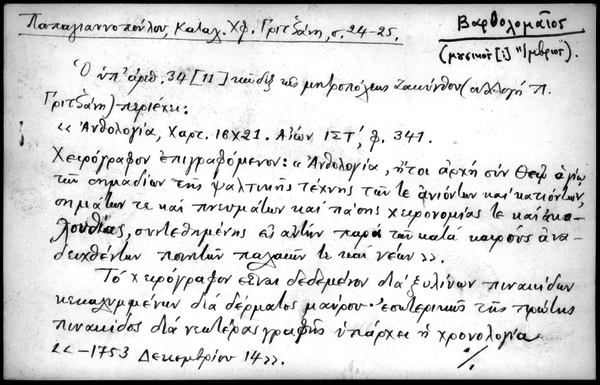 Παπαγιαννοπούλου, Καταλ. Χφ. Γριτζάνη, σ. 24-25.
Βαρθολομαῖος
(μουσικὸς [i] "Ἰμβριος").
Ὁ ὑπ' ἀριθ. 34 [11] κῶδιξ τῆς μητροπόλεως Ζακύνθου (συλλογή Π.
Γριτζάνη) περιέχει:
«Ἀνθολογία, Χαρτ. 16Χ21. Αἰών ΙΣΤ', φ. 341.
Χειρόγραφον ἐπιγραφόμενον: «Ἀνθολογία, ἤτοι ἀρχή σύν Θεῷ ἁγίῳ
τῶν σημαδίων τῆς ψαλτικῆς τέχνης τῶν τε ἀνιόντων καί κατιόντων,
σημάτων τε καί πνευμάτων καί πάσης χειρονομίας τε καί ἀκο-
λουθίας, συντεθημένης εἰς αὐτήν παρά τῶν κατά καιρούς ἀνα-
δειχθέντων ποιητῶν παλαιῶν τε καί νέων».
Τό χειρόγραφον εἶναι δεδεμένον διά ξυλίνων πινακίδων
κεκαλυμμένων διά δέρματος μαύρου· ἐσωτερικῶς τῆς πρώτης
πινακίδος διά νεωτέρας γραφῆς ὑπάρχει ἡ χρονολογία
«-1753 Δεκεμβρίου 14».